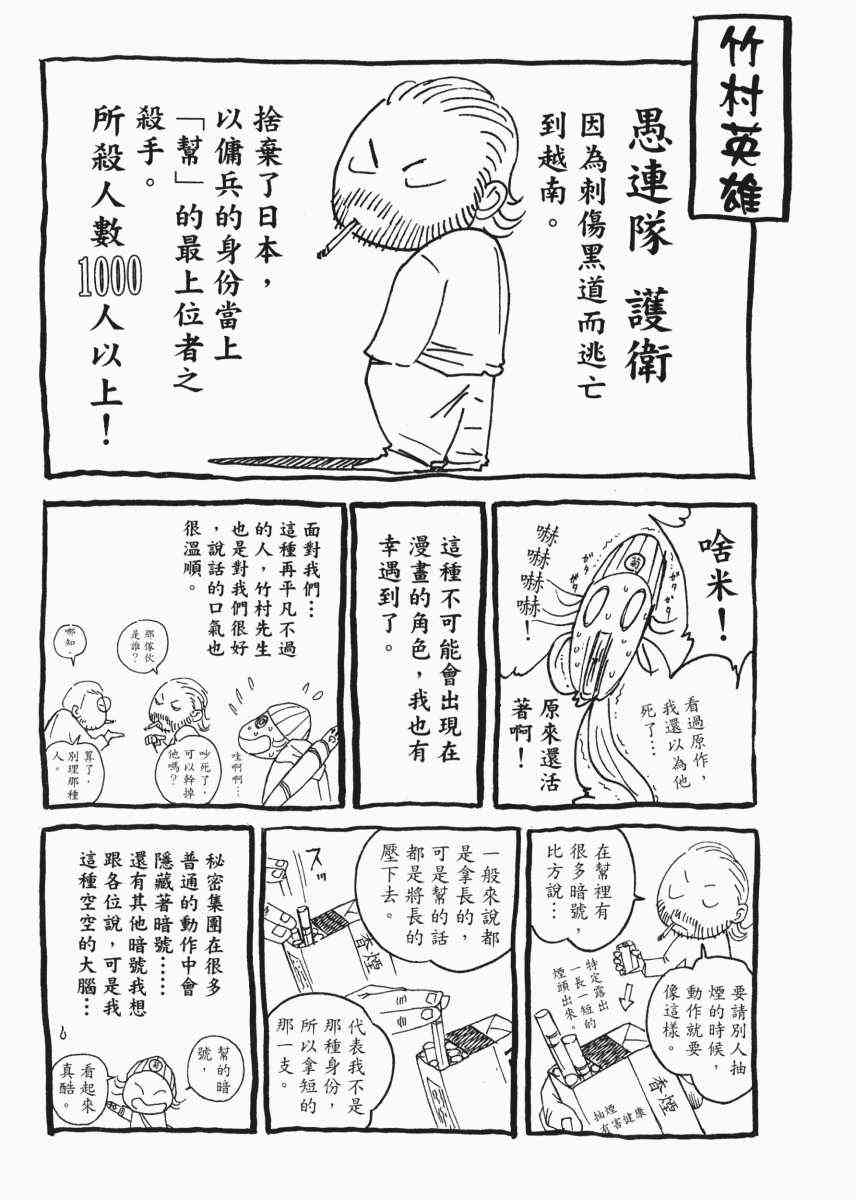 竹村英雄
愚連隊 護衛
因為刺傷黑道而逃亡
到越南。
捨棄了日本，
以傭兵的身份當上
「幫」的最上位者之
殺手。
所殺人數
1000人以上！
啥米！
嚇
嚇
嚇
嚇！
看過原作，
我還以為他
死了…
原來還活
著啊！
這種不可能會出現在
漫畫的角色，我也有
幸遇到了。
面對我們…
這種再平凡不過
的人，竹村先生
也是對我們很好
，說話的口氣也
很溫順。
那傢伙
是誰？
哪知。
哇啊啊…
吵死了，
可以幹掉
他嗎？
算了，
別理那種
人。
在幫裡有
很多暗號，
比方說…
要請別人抽
煙的時候，
動作就要
像這樣。
特定露出
一長一短的
煙頭出來。
香煙
抽煙
有害健康
一般來說都
是拿長的，
可是幫的話
都是將長的
壓下去。
スッ
香煙
代表我不是
那種身份，
所以拿短的
那一支。
秘密集團在很多
普通的動作中會
隱藏著暗號……
還有其他暗號我想
跟各位說，可是我
這種空空的大腦…
幫的暗
號，
看起來
真酷。